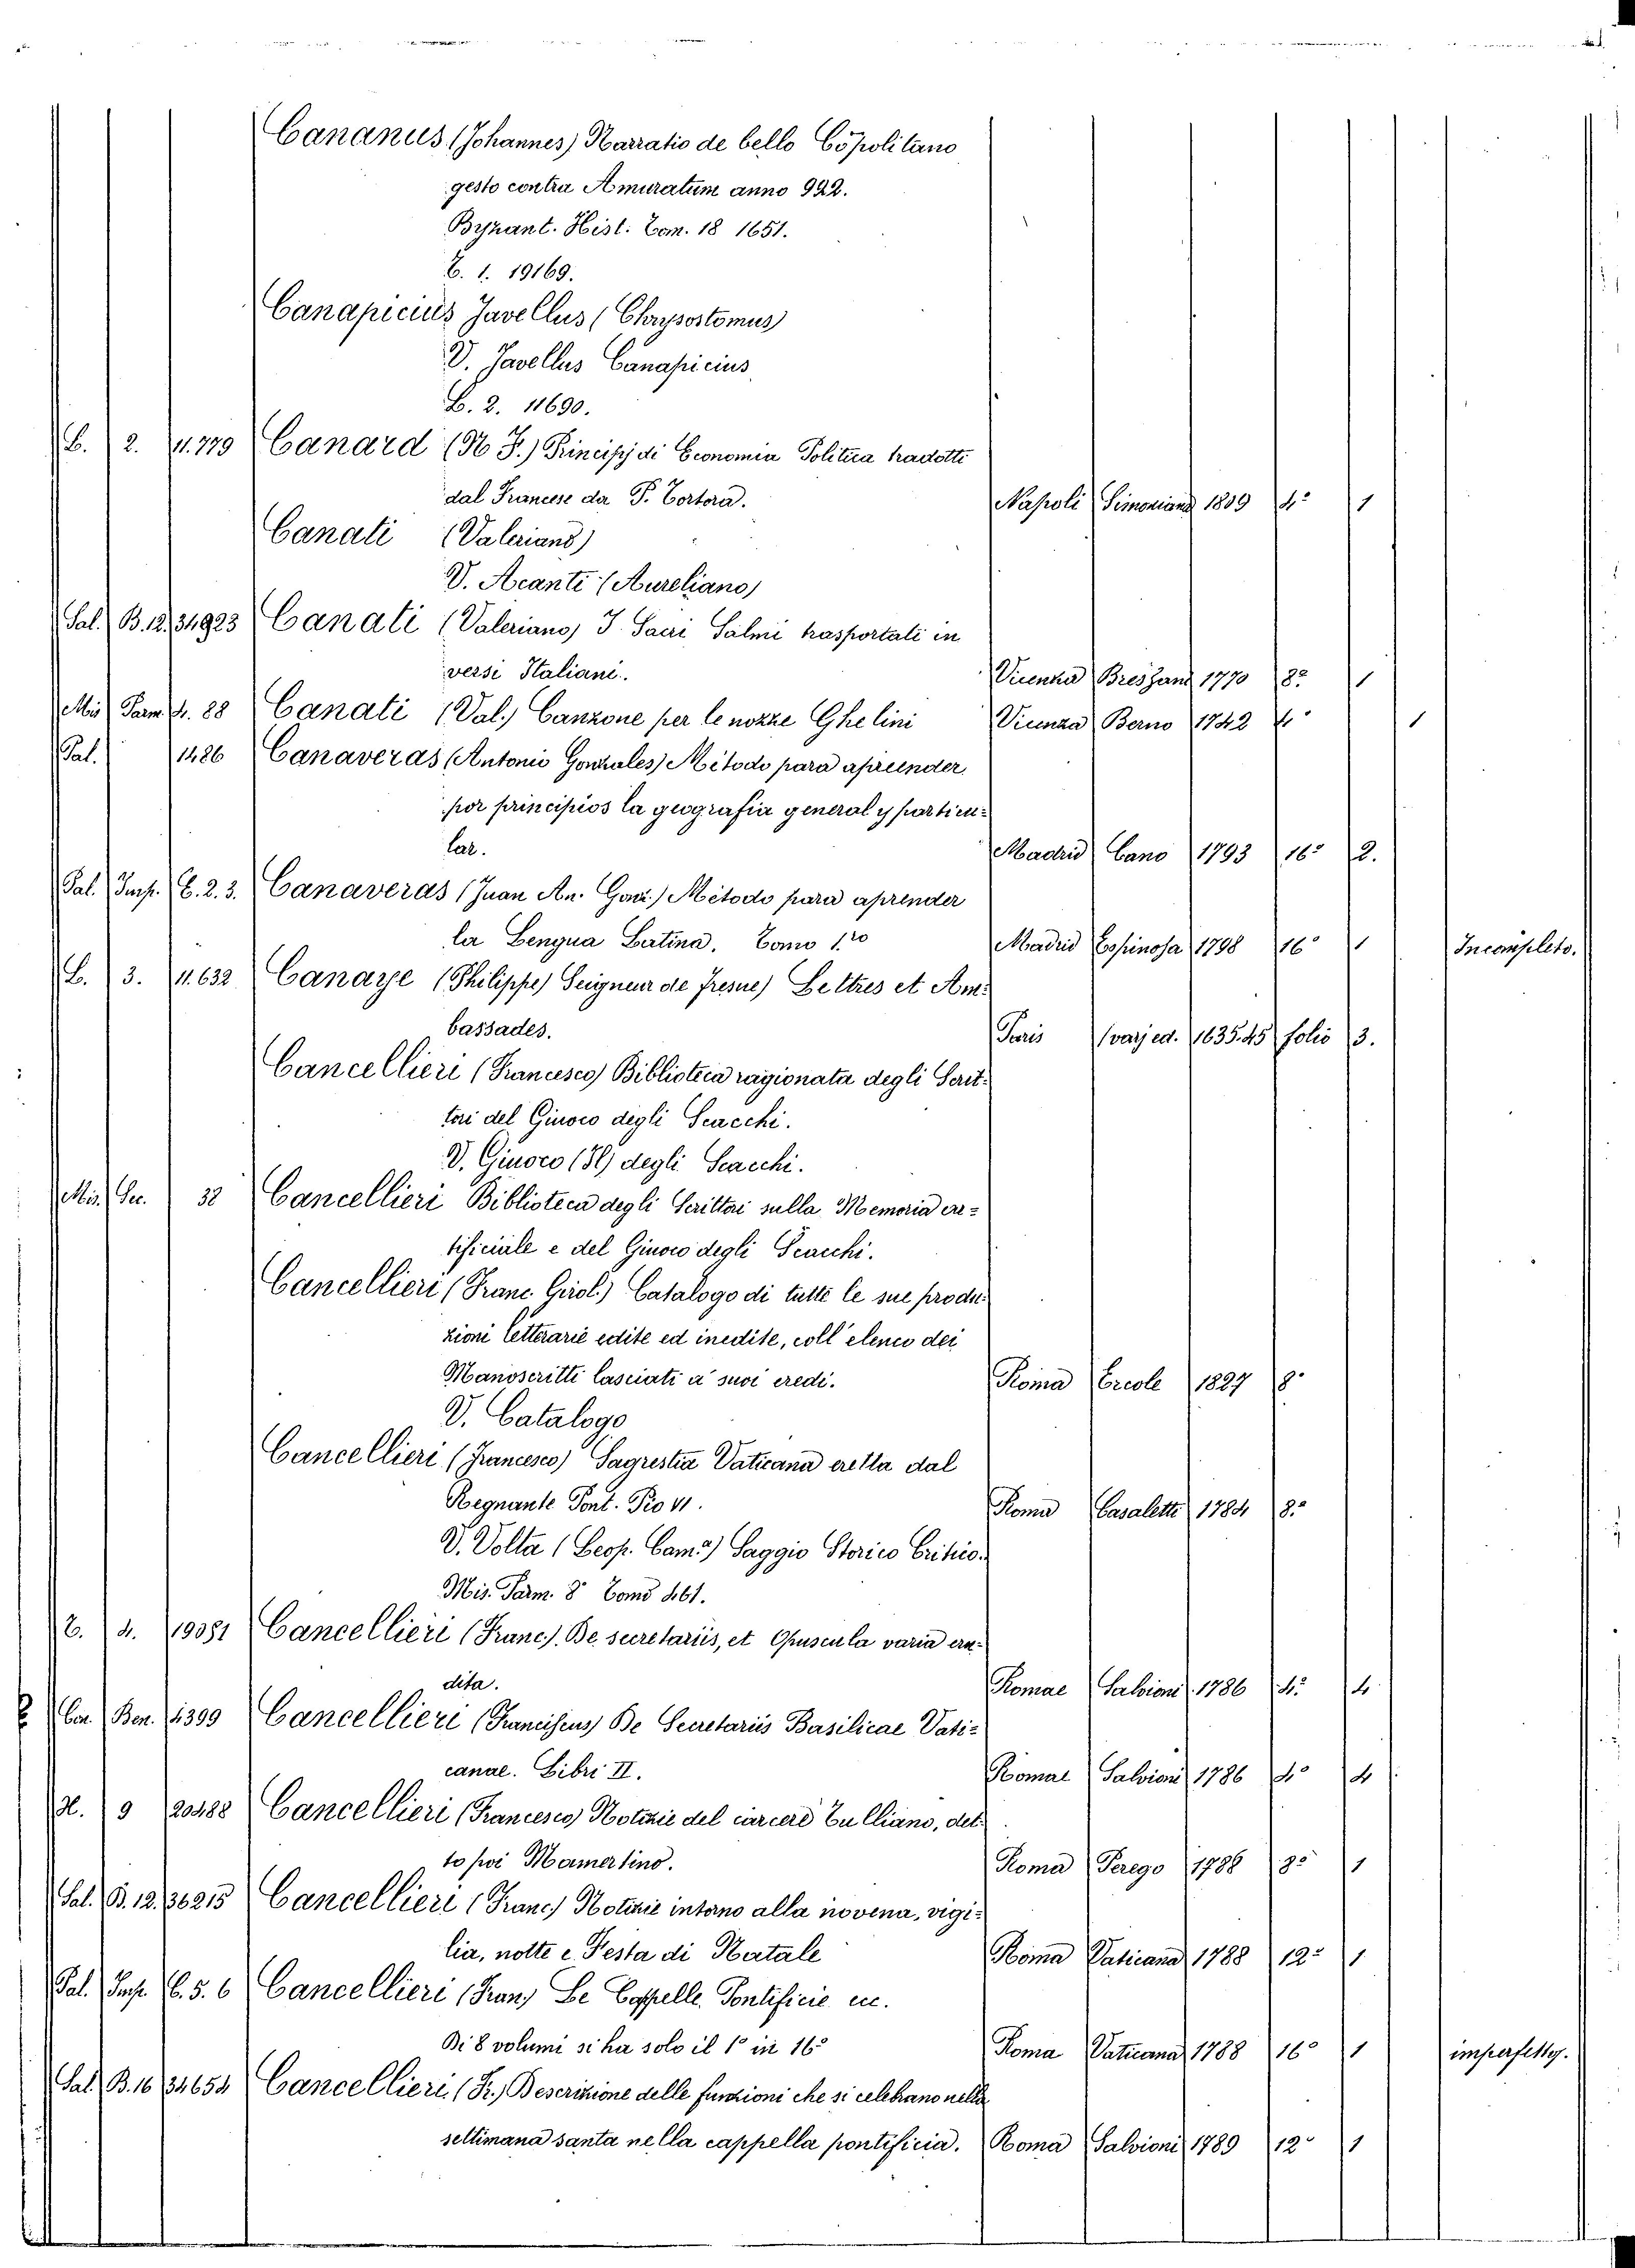 Cananus (Johannes) Narratio de bello Cōpolitano
gesto contra Amuratum anno 922.
Byzant. Hist. Tom. 18 1651.
E. 1. 19169.
Canapicius Javellus (Chrysostomus)
V. Javellus Canapicius
L. 2. 11690.
L. 2. 11.779 Canard (N. F.) Principj di Economia Politica tradotti
dal Francese da P. Tortora. Napoli Simoniana 1809 4° 1
Canati (Valeriano)
V. Acanti (Aureliano)
Sal. B. 12. 34923 Canati (Valeriano) I Sacri Salmi trasportati in
versi Italiani. Vicenza Bressana 1770 8° 1
Mis Parm. 4. 88 Canati (Val.) Canzone per le nozze Ghelini Vicenza Berno 1742 4° 1
Pal. 1486 Canaveras (Antonio Gonzales) Mètodo para apreender
por principios la geografia general y particu=
lar. Madrid Cano 1793 16° 2.
Pal. Imp. C. 2. 3. Canaveras (Juan An. Gonz.) Mètodo para aprender
la Lengua Latina. Tomo 1.ro Madrid Espinosa 1798 16° 1 Incompleto.
L. 3. 11.632 Canaye (Philippe) Seigneur de Fresne) Lettres et Am=
bassades. Paris (varj ed. 1635.45 folio 3.
Cancellieri (Francesco) Biblioteca ragionata degli Scrit=
tori del Giuoco degli Scacchi.
V. Giuoco (Il) degli Scacchi.
Mis. Sec. 32 Cancellieri Biblioteca degli Scrittori sulla Memoria ar=
tificiale e del Giuoco degli Scacchi.
Cancellieri (Franc. Girol.) Catalogo di tutte le sue produ=
zioni letterarie edite ed inedite, coll' elenco dei
Manoscritti lasciati a' suoi eredi. Roma Ercole 1827 8°
V. Catalogo
Cancellieri (Francesco) Sagrestia Vaticana eretta dal
Regnante Pont. Pio VI. Roma Casaletti 1784 8°
V. Volta (Leop. Cam.o) Saggio Storico Critico.
Mis. Parm. 8° Tomo 461.
E. 4. 19081 Cancellieri (Franc.) De secretariis, et Opuscula varia eru=
dita. Romae Salvioni 1786 4° 4
Con. Ben. 4399 Cancellieri (Franciscus) De Secretariis Basilicae Vati=
canae. Libri II. Romae Salvioni 1786 4° 4
H. 9 20488 Cancellieri (Francesco) Notizie del carcere Tulliano, det=
to poi Mamertino. Roma Perego 1788 8° 1
Sal. B. 12. 36215 Cancellieri (Franc.) Notizie intorno alla novena, vigi=
lia, notte e Festa di Natale Roma Vaticana 1788 12° 1
Pal. Imp. C. 5. 6 Cancellieri (Fran) Le Cappelle Pontificie ec.
Di 8 volumi si ha solo il 1° in 16° Roma Vaticana 1788 16° 1 imperfetto.
Sal. B. 16 34654 Cancellieri (Fr.) Descrizione delle funzioni che si celebrano nella
settimana santa nella cappella pontificia. Roma Salvioni 1789 12° 1